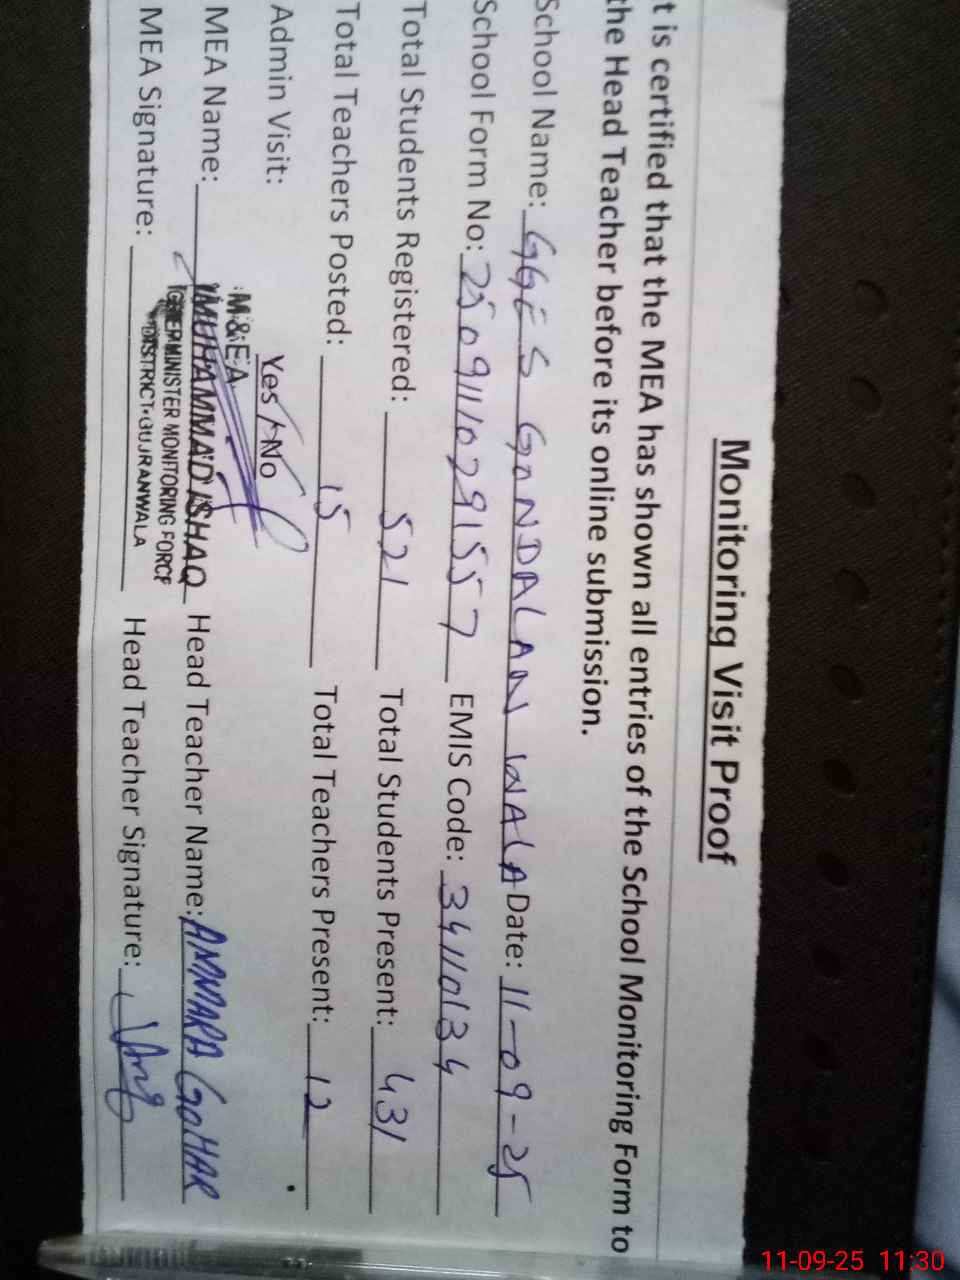 Monitoring Visit Proof
t is certified that the MEA has shown all entries of the School Monitoring Form to
the Head Teacher before its online submission.
School Name: GGES GONDALAN WALA Date: 11-09-25
School Form No: 25091110791557 EMIS Code: 34110134
Total Students Registered: 521 Total Students Present: 431
Total Teachers Posted: 15 Total Teachers Present: 12
Admin Visit: Yes / No
M&EA
MEA Name: MUHAMMAD ISHAQ Head Teacher Name: AMMARA GOHAR
MINISTER MONITORING FORCE
MEA Signature: DISTRICT GUJRANWALA Head Teacher Signature:
11-09-25 11:30